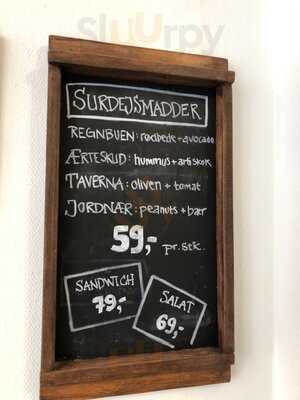 Sluurpy
SURDEJSMADDER
REGNBUEN: rødbede + avocado
ÆRTESKUD: hummus + artiskok
TAVERNA: oliven + tomat
JORDNÆR: peanuts + bær
59,- pr. stk.
SANDWICH
79,-
SALAT
69,-